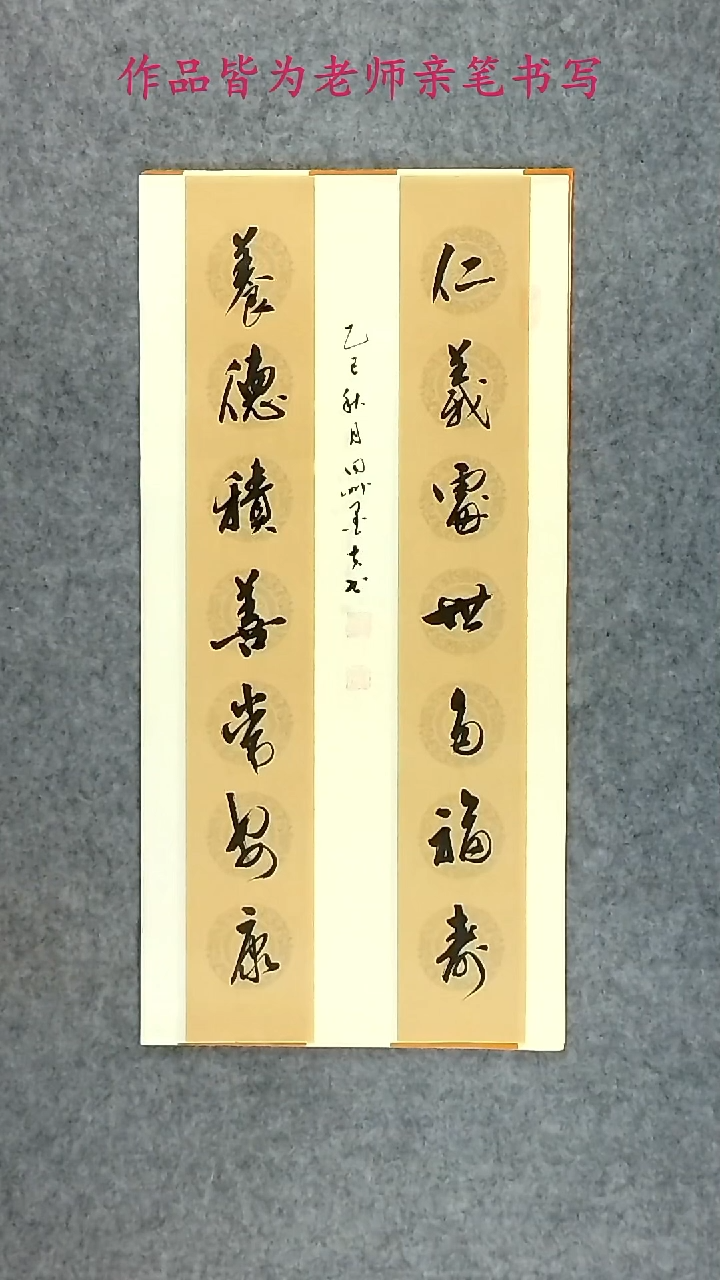 作品皆为老师亲笔书写
仁義處世自福寿
養德積善常安康
乙巳秋月田州墨书